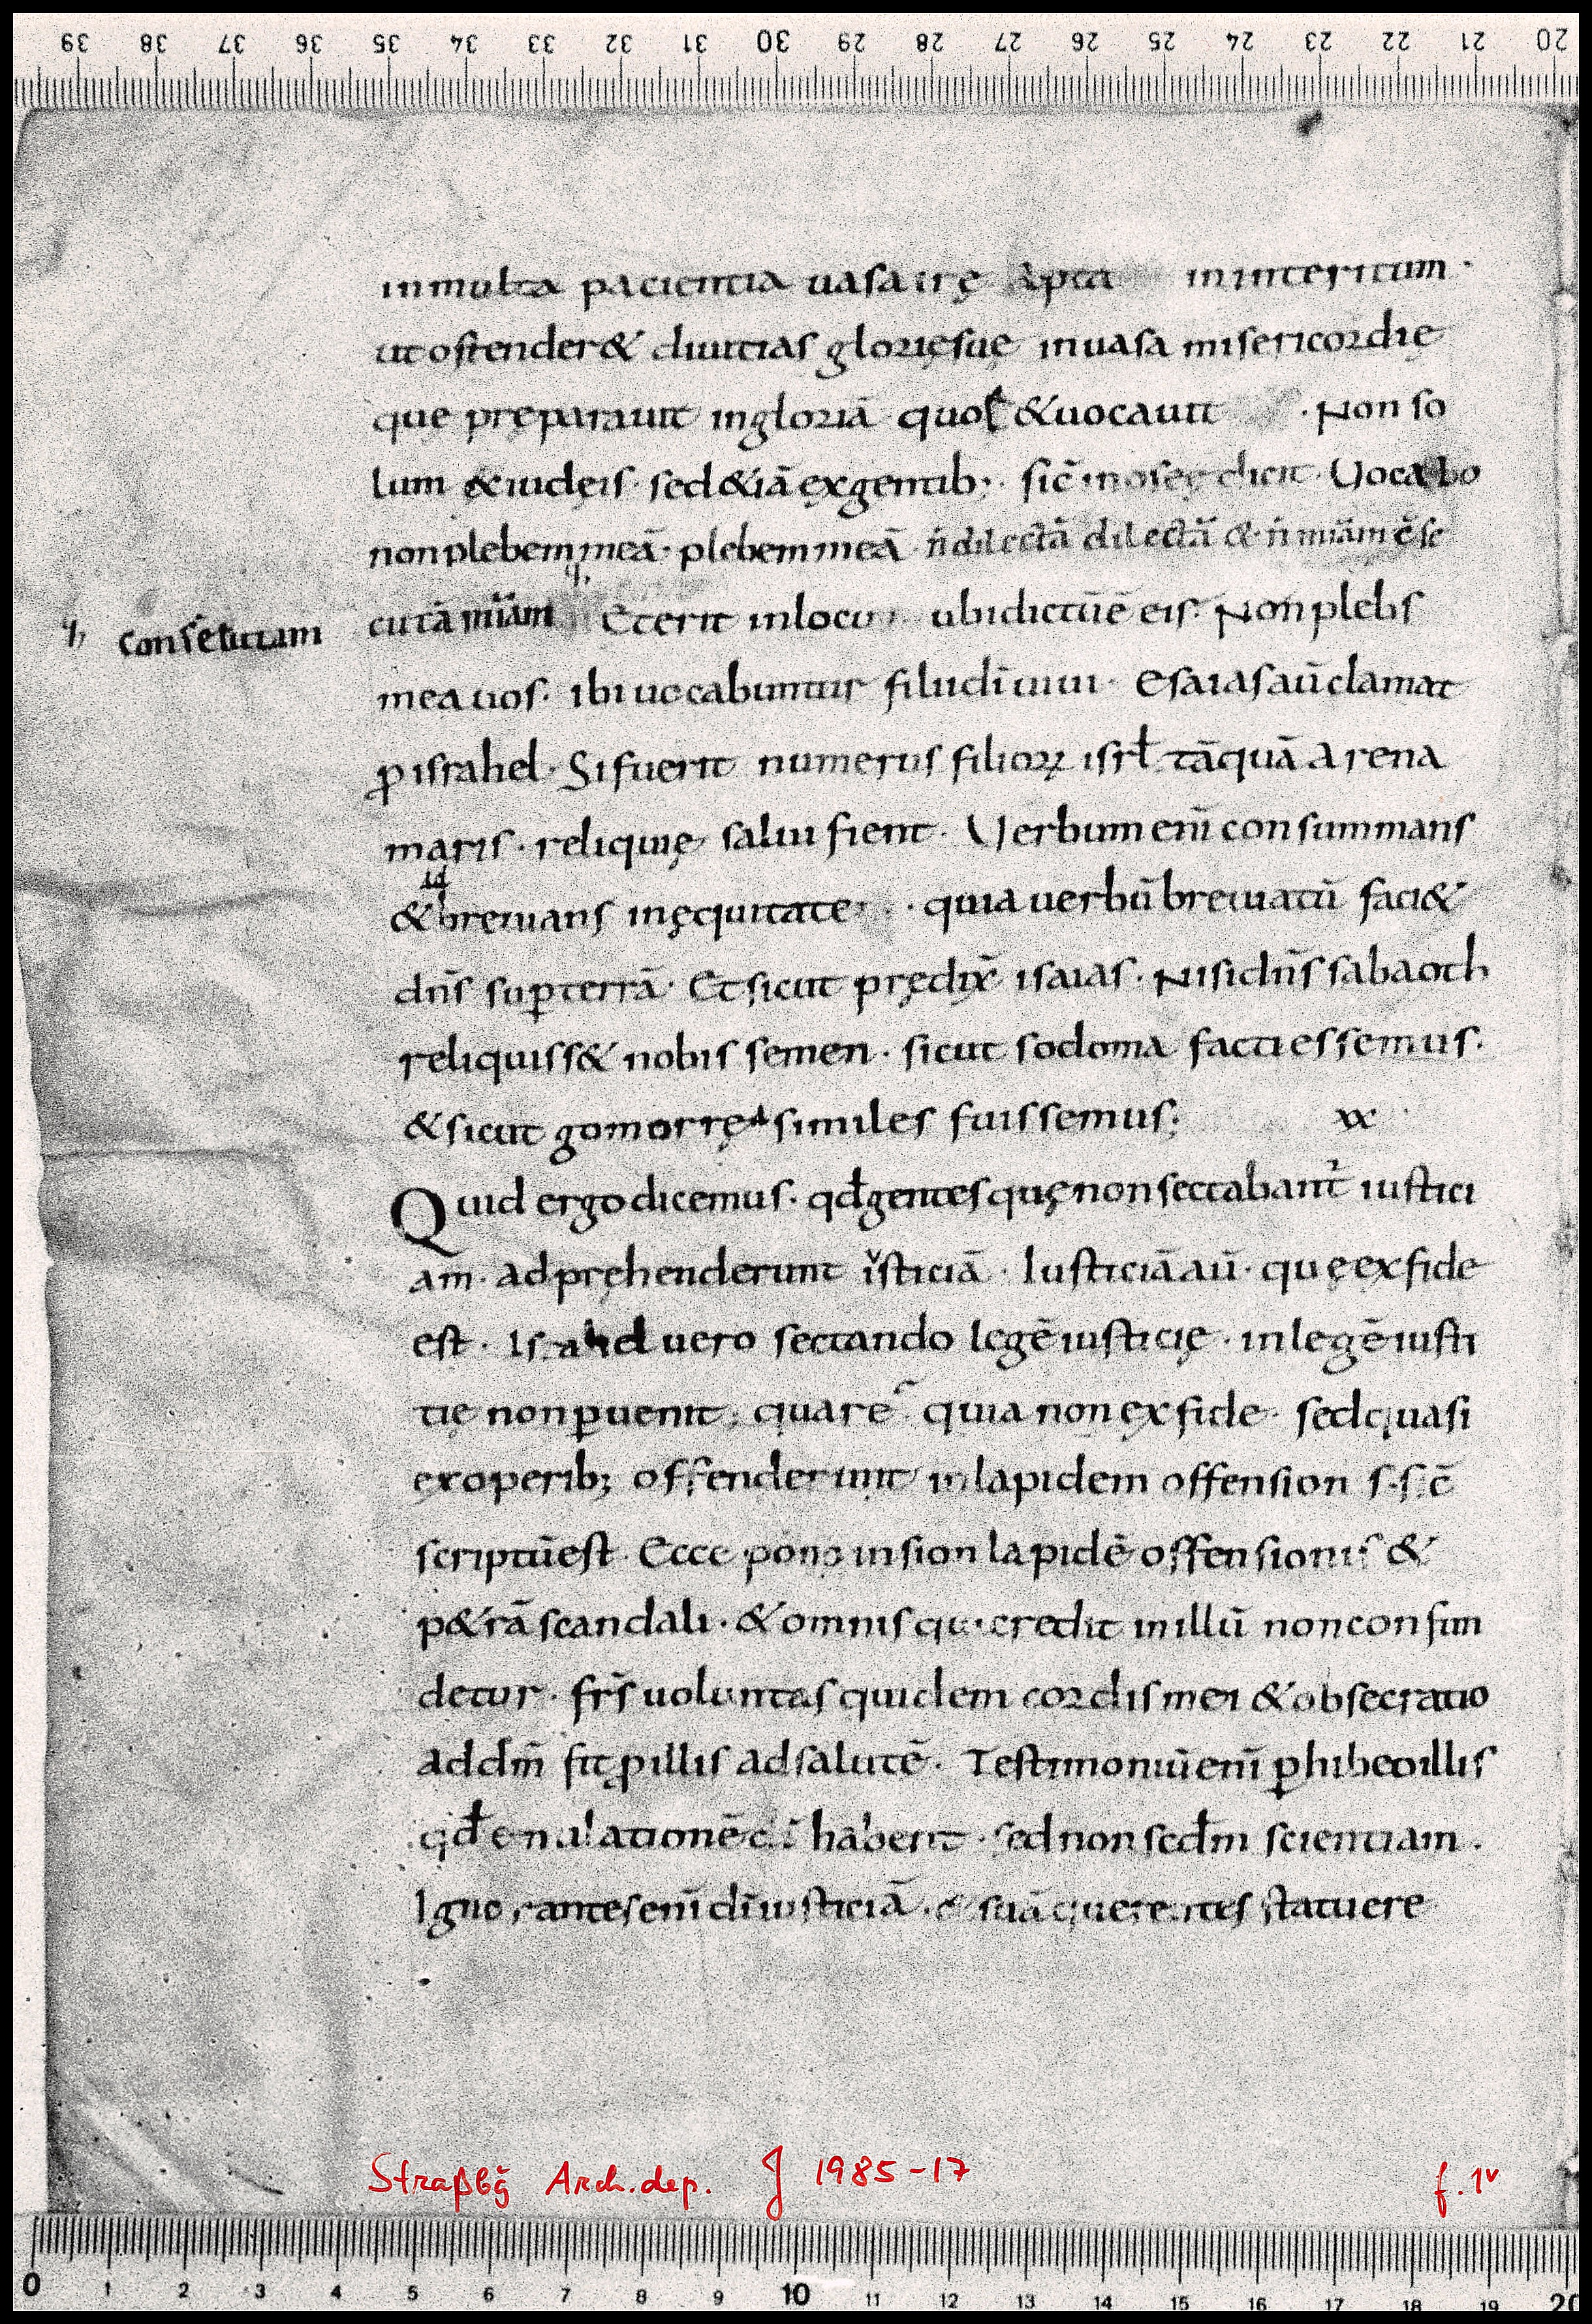 inmulta pacientia uasa irę apta in interitum ·
ut ostender& diuitias glorięsuę inuasa misericordię
que pręparauit ingloriā quos &uocauit · Non so
lum &iudęis· sed&iā exgentib; · sic̄ inoseę dicit · Uocabo
nonplebem meā · plebem meā n̄ dilectā dilectā & n̄ miām c̄se
cutā miām Et erit inloco ubidictūē eis · Non plebs
ч, consecutam
mea uos · ibi uocabuntur filiidī uiui · Esaias aū clamat
ꝓ israhel · Si fuerit numerus filioꝝ isrł tāquā arena
maris · reliquię salui fient · Uerbum enī consummans
&breuians inęquitate · quia uerbū breuiatū faci&
dn̄s sup̱ terrā · Et sicut prędix̄ isaias · Nisi dn̄s sabaoth
reliquiss& nobis semen · sicut sodoma facti essemus ·
&sicut gomorrę similes fuissemus; xx
Quid ergo dicemus · qđ gentes quę non sectabant̄ iustici
am · adpręhenderunt isticiā · Iusticiā aū · quę exfide
est · Israhel uero sectando legē iusticię · inlegē iusti
tię non p̱uenit; quare quia non exfide · sed quasi
exoperib; offenderunt inlapidem offension s · s c̄
scriptūest · Ecce pono insion lapidē offensionis &
p&rā scandali · &omnis qui credit inillū nonconfun
detur · fr̄s uoluntas quidem cordis mei &obsecratio
addm̄ fit ꝓ illis adsalutē · Testimoniū enī p̱hibeo illis
qđ emulationē dī habent · sed non secđm scientiam ·
Ignorantes enī dī iusticiā · & suā querentes statuere
Straßbg Arch.dep. J 1985-17 f. 1v